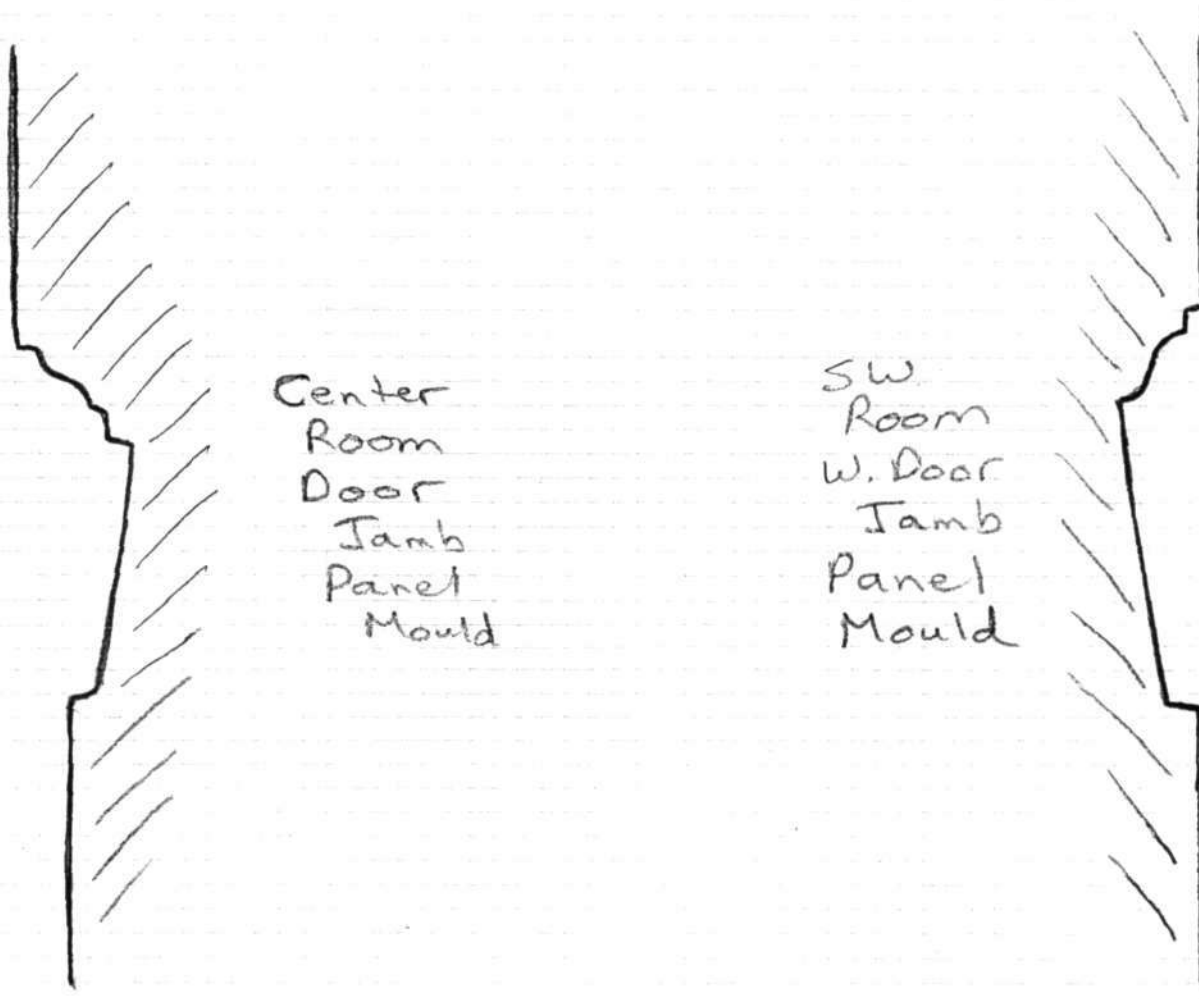 Center
Room
Door
Jamb
Panel
Mould
SW
Room
W. Door
Jamb
Panel
Mould